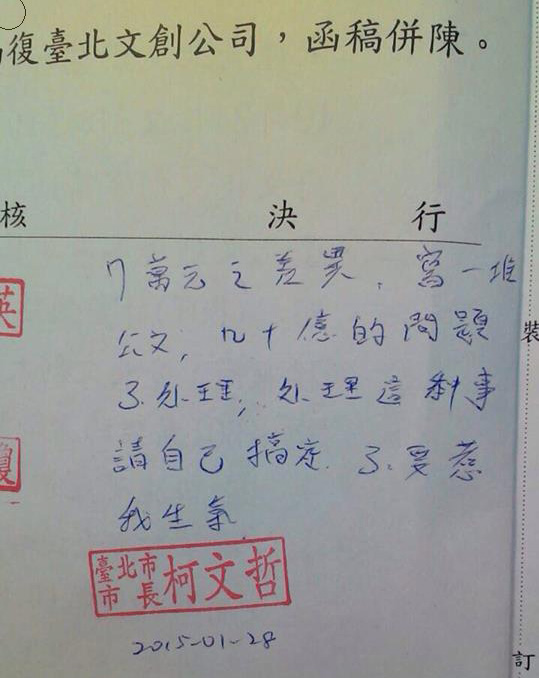 復臺北文創公司，函稿併陳。
核 決 行
7萬元之差異，寫一堆
公文，几十億的問題
不处理，处理這種事
請自己搞定。不要惹
我生氣。
臺北市
市長 柯文哲
2015-01-28
英
瓊
裝
訂